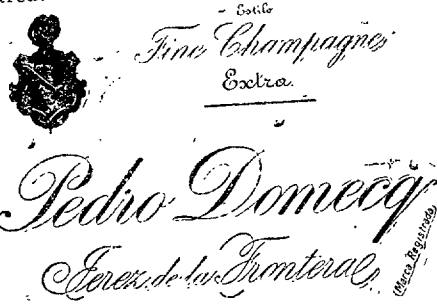 Estilo
Fine Champagne
Extra.
Pedro Domecq
Jerez de la Frontera
(Marca Registrada)